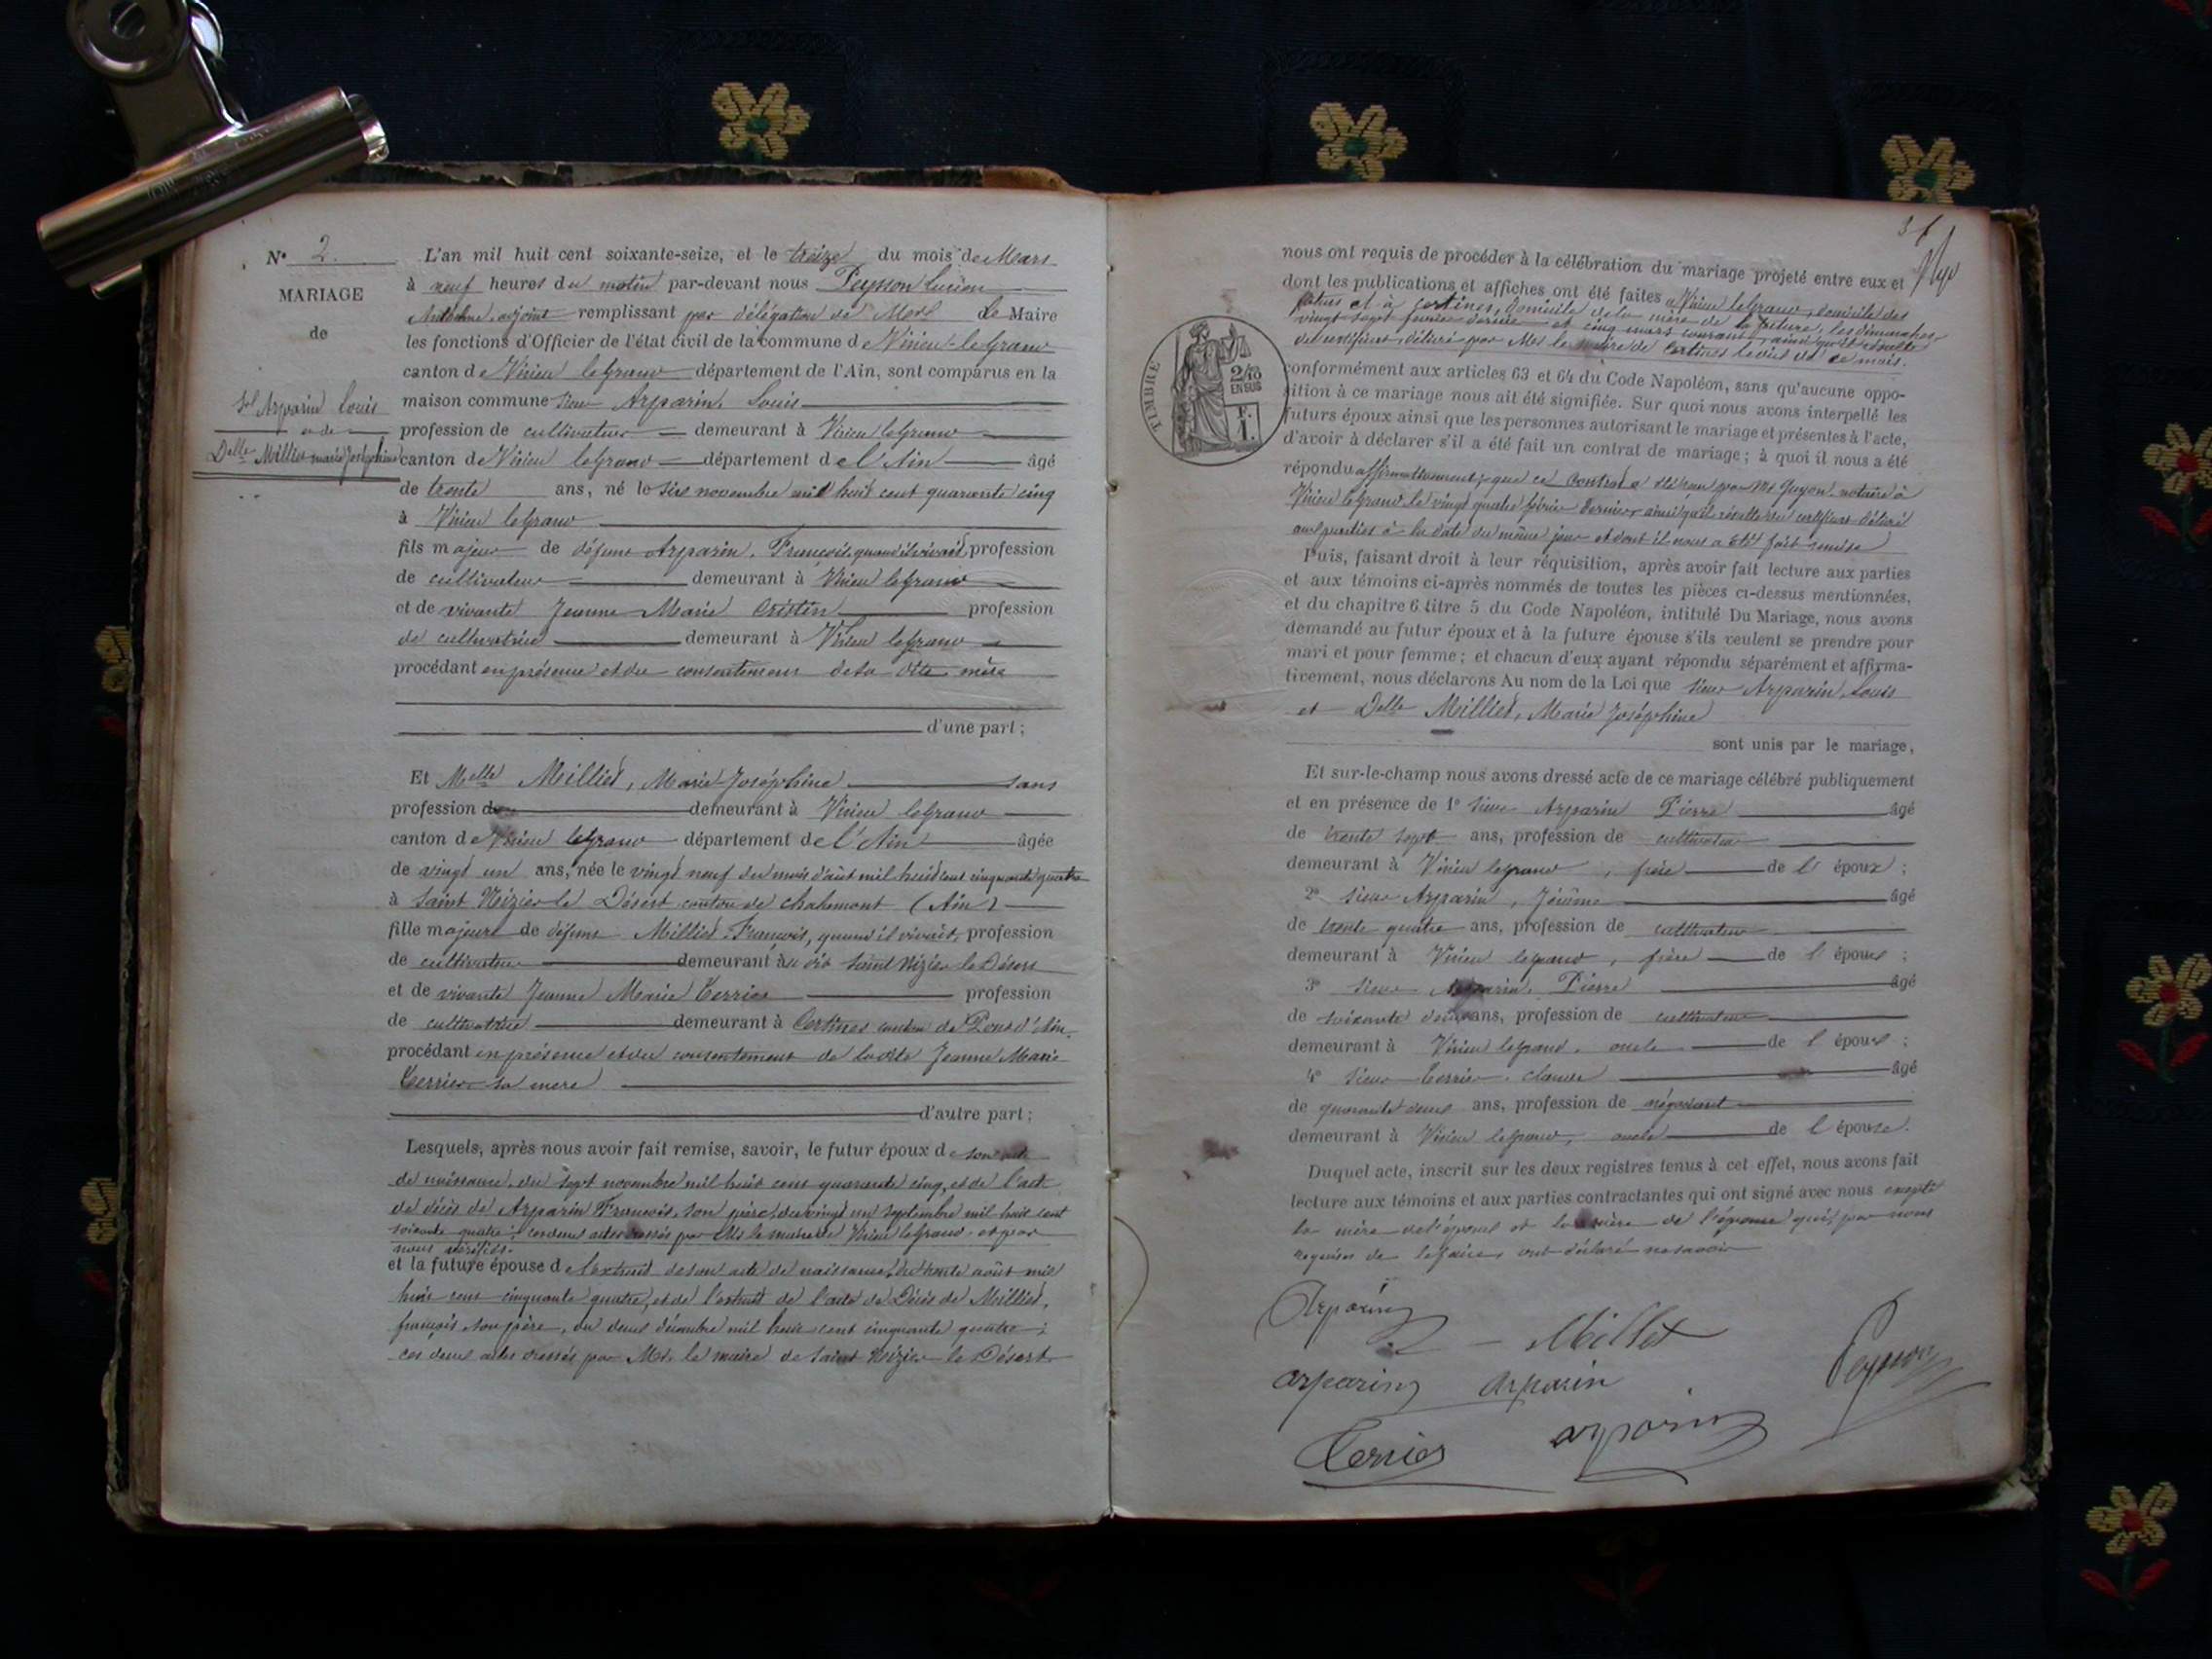 N° 2.
MARIAGE
de
Sr Arparin Louis
et de
Delle Milliet marie josephine
L'an mil huit cent soixante-seize, et le treize du mois de Mars
à neuf heures du matin par-devant nous Peysson Lucien
Antoine, adjoint remplissant par délégation de Mr le Maire
les fonctions d'Officier de l'état civil de la commune de Virieu-le-Grand
canton de Virieu le Grand département de l'Ain, sont comparus en la
maison commune sieur Arparin, Louis
profession de cultivateur demeurant à Virieu le Grand
canton de Virieu le Grand département de l'Ain âgé
de trente ans, né le six novembre mil huit cent quarante cinq
à Virieu le Grand
fils majeur de défunt Arparin, François, quand il vivait, profession
de cultivateur demeurant à Virieu le Grand
et de vivante Jeanne Marie Cristin profession
de cultivatrice demeurant à Virieu le Grand
procédant en présence et du consentement de sa dite mère
d'une part ;
Et Melle Milliet, Marie Joséphine sans
profession de demeurant à Virieu le Grand
canton de Virieu le Grand département de l'Ain âgée
de vingt un ans, née le vingt neuf du mois d'août mil huit cent cinquante quatre
à Saint Nizier le Désert canton de chalamont (Ain)
fille majeure de défunt Milliet, François, quand il vivait, profession
de cultivateur demeurant au dit Saint Nizier le Désert
et de vivante Jeanne Marie Terrier profession
de cultivatrice demeurant à Certines canton de Pont d'Ain
procédant en présence et du consentement de la dite Jeanne Marie
Terrier sa mère
d'autre part ;
Lesquels, après nous avoir fait remise, savoir, le futur époux de son acte
de naissance, du sept novembre mil huit cent quarante cinq, et de l'acte
de décès de Arparin François, son père, du vingt un septembre mil huit cent
soixante quatre ; ces deux actes dressés par Mr le maire de Virieu le Grand, et par
nous vérifiés.
et la future épouse de l'extrait de son acte de naissance, du trente août mil
huit cent cinquante quatre, et de l'extrait de l'acte de Décès de Milliet,
françois son père, du deux décembre mil huit cent cinquante quatre ;
ces deux actes dressés par Mr le maire de Saint Nizier le Désert
31
nous ont requis de procéder à la célébration du mariage projeté entre eux et
dont les publications et affiches ont été faites à Virieu le Grand, domicile des
futurs et à Certines, domicile de la mère de la future, les dimanches
vingt sept février dernier et cinq mars courant, ainsi qu'il résulte
du certificat délivré par Mr le maire de Certines le dix de ce mois.
TIMBRE
2/10
EN SUS
F.
1.
conformément aux articles 63 et 64 du Code Napoléon, sans qu'aucune oppo-
sition à ce mariage nous ait été signifiée. Sur quoi nous avons interpellé les
futurs époux ainsi que les personnes autorisant le mariage et présentes à l'acte,
d'avoir à déclarer s'il a été fait un contrat de mariage ; à quoi il nous a été
répondu affirmativement ; que ce contrat a été reçu par Me Guyon, notaire à
Virieu le Grand, le vingt quatre février dernier ainsi qu'il résulte du certificat délivré
aux parties à la date du même jour et dont il nous a été fait remise
Puis, faisant droit à leur réquisition, après avoir fait lecture aux parties
et aux témoins ci-après nommés de toutes les pièces ci-dessus mentionnées,
et du chapitre 6 titre 5 du Code Napoléon, intitulé Du Mariage, nous avons
demandé au futur époux et à la future épouse s'ils veulent se prendre pour
mari et pour femme ; et chacun d'eux ayant répondu séparément et affirma-
tivement, nous déclarons Au nom de la Loi que sieur Arparin, Louis
et Delle Milliet, Marie Joséphine
sont unis par le mariage,
Et sur-le-champ nous avons dressé acte de ce mariage célébré publiquement
et en présence de 1° sieur Arparin Pierre âgé
de trente sept ans, profession de cultivateur
demeurant à Virieu le grand, frère de l'époux ;
2° sieur Arparin, Jérôme âgé
de trente quatre ans, profession de cultivateur
demeurant à Virieu le grand, frère de l'époux ;
3° sieur Arparin, Pierre âgé
de soixante deux ans, profession de cultivateur
demeurant à Virieu le grand, oncle de l'époux ;
4° sieur Terrier, claude âgé
de quarante deux ans, profession de négociant
demeurant à Virieu le grand, oncle de l'épouse.
Duquel acte, inscrit sur les deux registres tenus à cet effet, nous avons fait
lecture aux témoins et aux parties contractantes qui ont signé avec nous excepté
la mère de l'époux et la mère de l'épouse qui, par nous
requises de le faire, ont déclaré ne savoir
Arparin
Millet
arparin arparin
Peysson
Terrier arparin